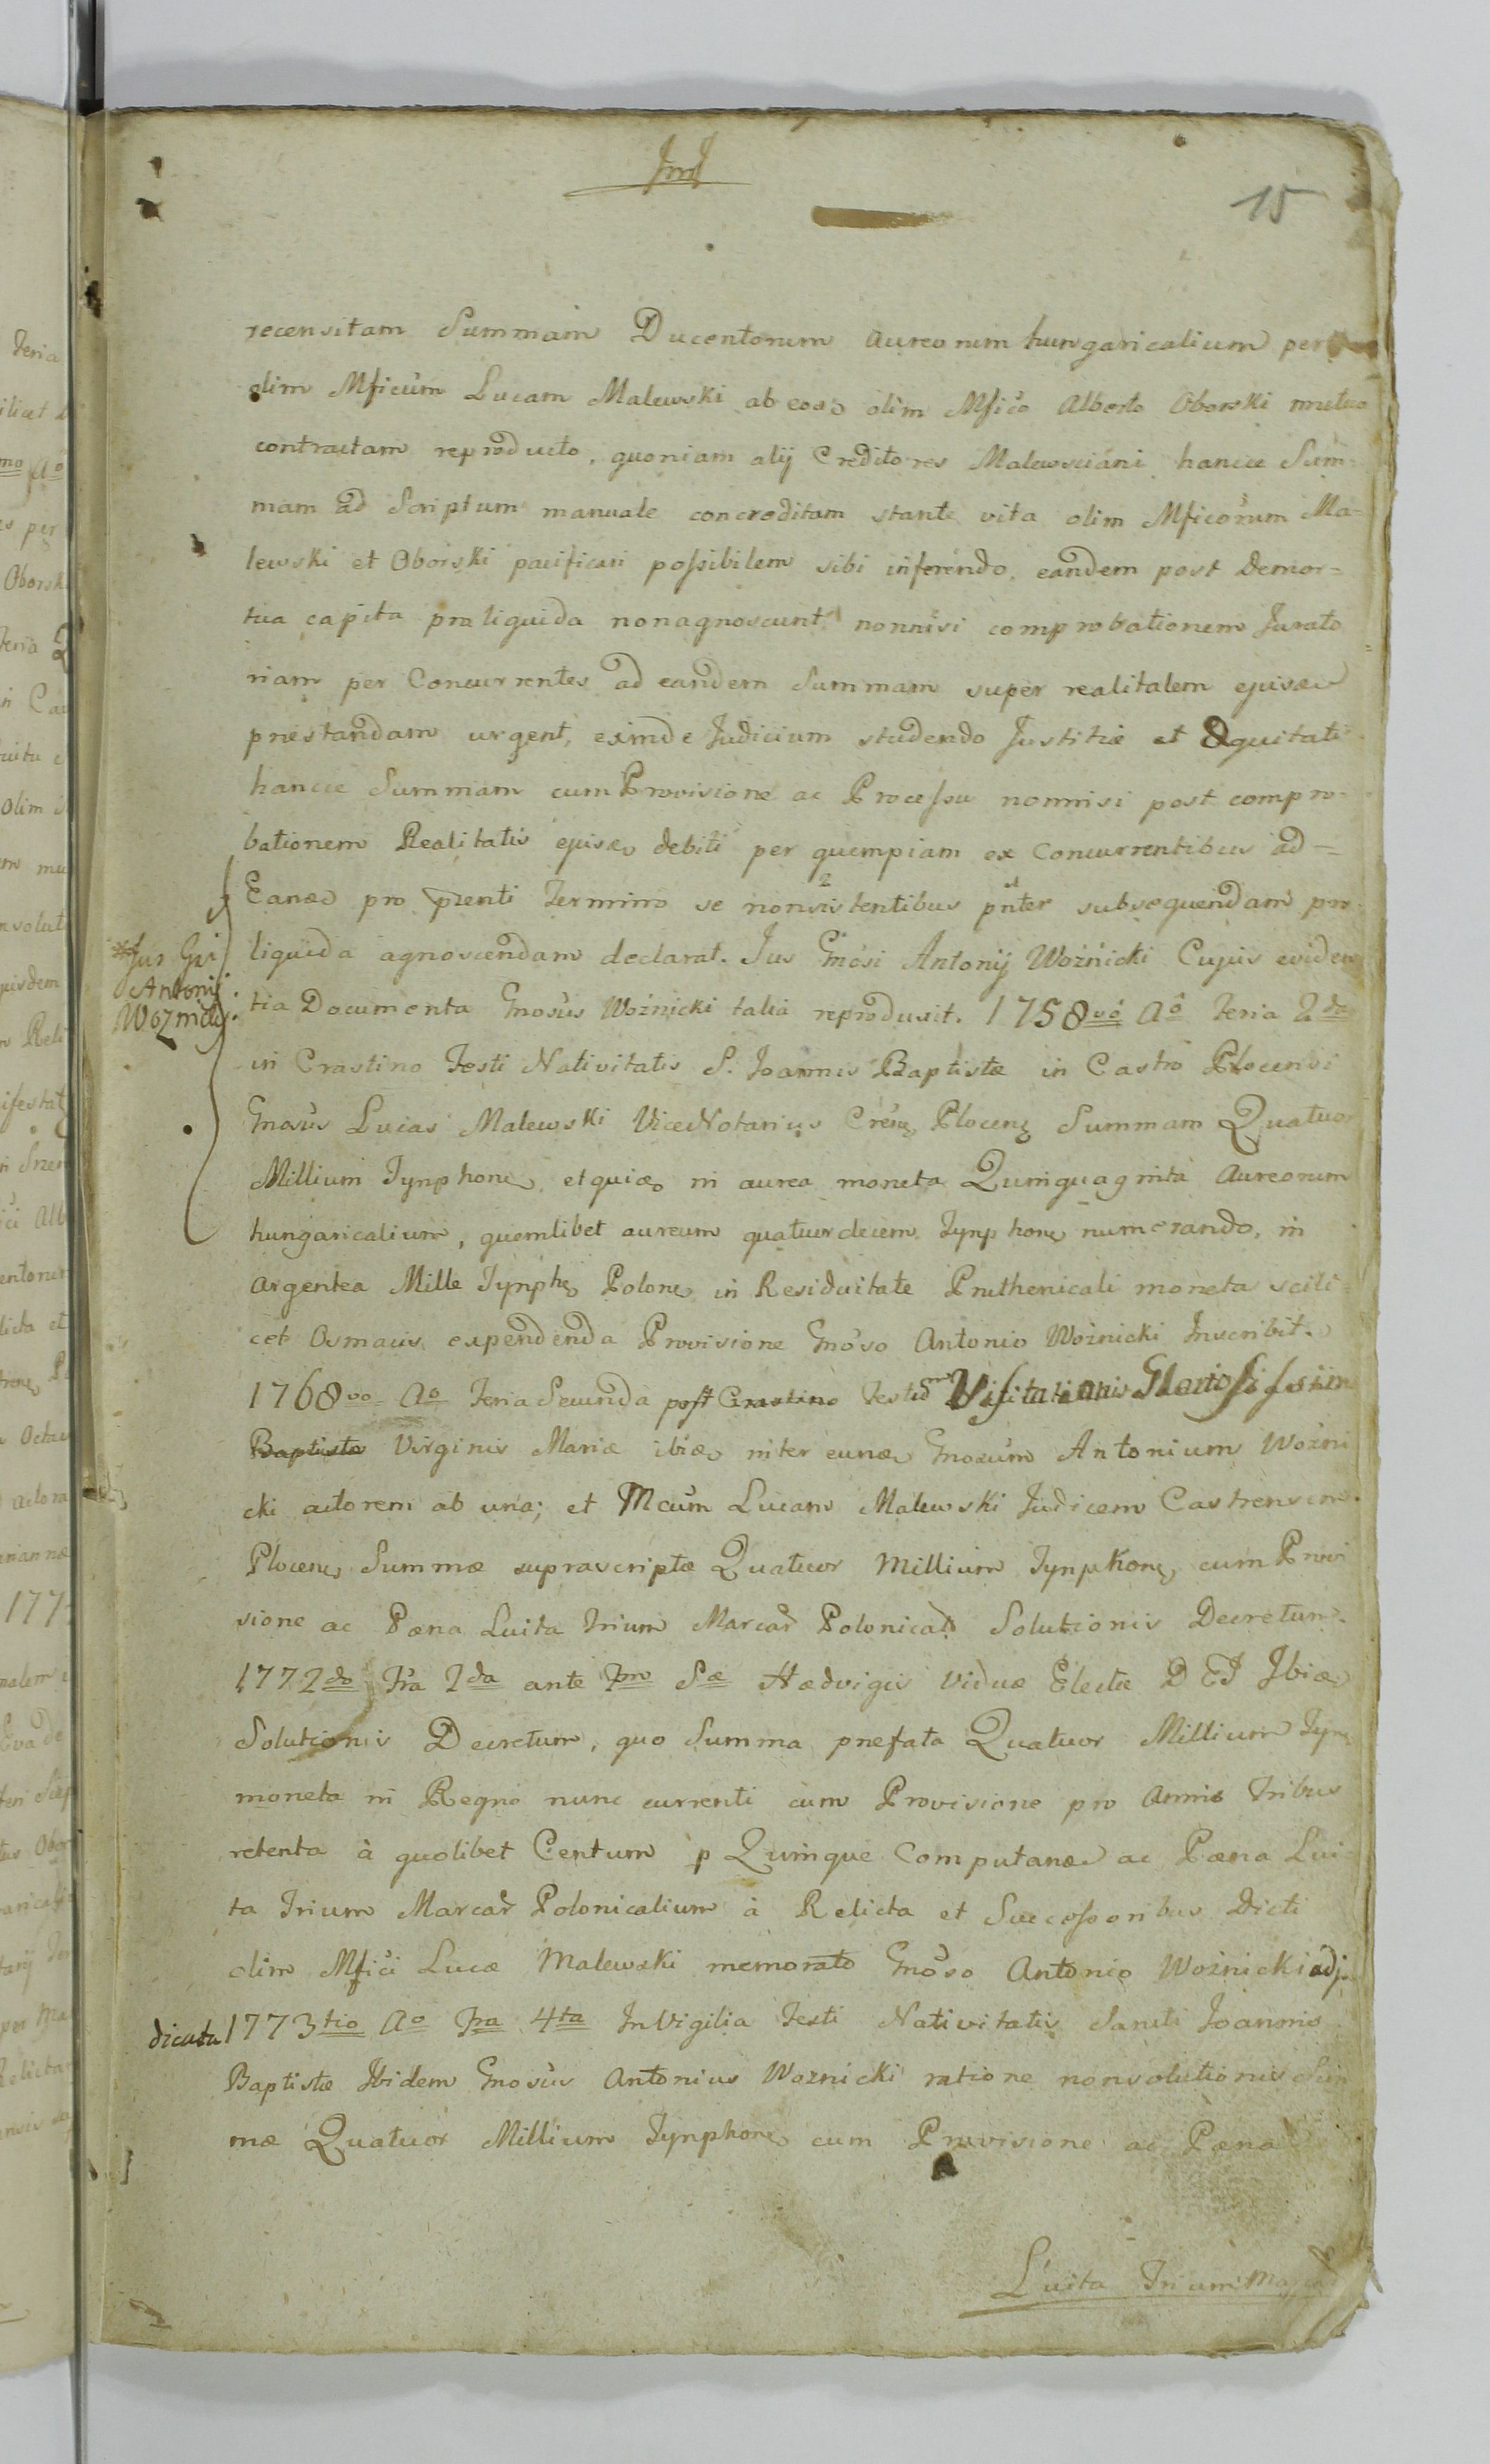 15
recensitam Summam Ducentorum Aureorum hungaricalium per
olim Mficum Lucam Malewski ab eodo olim Mfico Alberto Oborski mutuo
contractam reproducto, quoniam alij Creditores Malewsciani hancce Sum=
mam ad Scriptum manuale concreditam stante vita olim Mficorum Ma=
lewski et Oborski pacificari possibilem sibi inferendo, eandem post Demor=
tua capita pro liquida non agnoscunt nonnisi comprobationem Jurato
riam per Concurrentes ad eandem Summam super realitatem ejusdem
præstandam urgent, exinde Judicium studendo Justitiæ et Æquitati
hancce Summam cum Provisione ac Processu nonnisi post compro=
bationem Realitatis ejusdem debiti per quempiam ex Concurrentibus ad=
Eandem pro pnti Termino se non sistentibus pnter subsequendam pro
liquida agnoscendam declarat. Jus Gnosi Antonij Woźnicki Cujus eviden
*Jus Gsi
Antonij
Woznicki.
tia Documenta Gnosus Woźnicki talia reprodusit. 1758vo Ao Feria 2da
in Crastino Festi Nativitatis S. Joannis Baptistæ in Castro Plocensi
Gnosus Lucas Malewski ViceNotarius Crens Plocens Summam Quatuor
Millium Tynphone et quidem in aurea moneta Quinquaginta Aureorum
hungaricalium, quemlibet aureum quatuordecem Tynphone numerando, in
Argentea Mille Tynphe Polone in Residuitate Pruthenicali moneta scili
cet Osmacis expendenda Provisione Gnoso Antonio Woźnicki Inscribit.
1768vo Ao Feria Secunda post Crastino Festum Visitationis Gloriosissim
Baptista Virginis Mariæ ibidem inter eundem Gnosum Antonium Woźni
cki actorem ab una; et Mcum Lucam Malewski Judicem Castrensem
Plocens Summæ suprascriptæ Quatuor Millium Tynphone cum Provi
sione ac Pæna Luita Trium Marcar Polonical Solutionis Decretum.
1772do Fra 2da ante Fm Sæ Hædvigis Viduæ Electæ D E J Ibidem
Solutionis Decretum, quo Summa pnefata Quatuor Millium Tyne
moneta in Regno nunc currenti cum Provisione pro Annis Tribus
retenta à quolibet Centum p Quinque Computanda ac Pæna Lui
ta Trium Marcar Polonicalium à Relicta et Successoribus Dicti
olim Mfici Lucæ Malewski memorato Gnoso Antonio Woźnicki adju
dicata 1773tio Ao Fra 4ta In Vigilia Festi Nativitatis Sancti Joannis
Baptistæ Ibidem Gnosus Antonius Woźnicki ratione nonsolutionis Sum
mæ Quatuor Millium Tynphone cum Provisione ac Pæna
Luita Trium Marcar